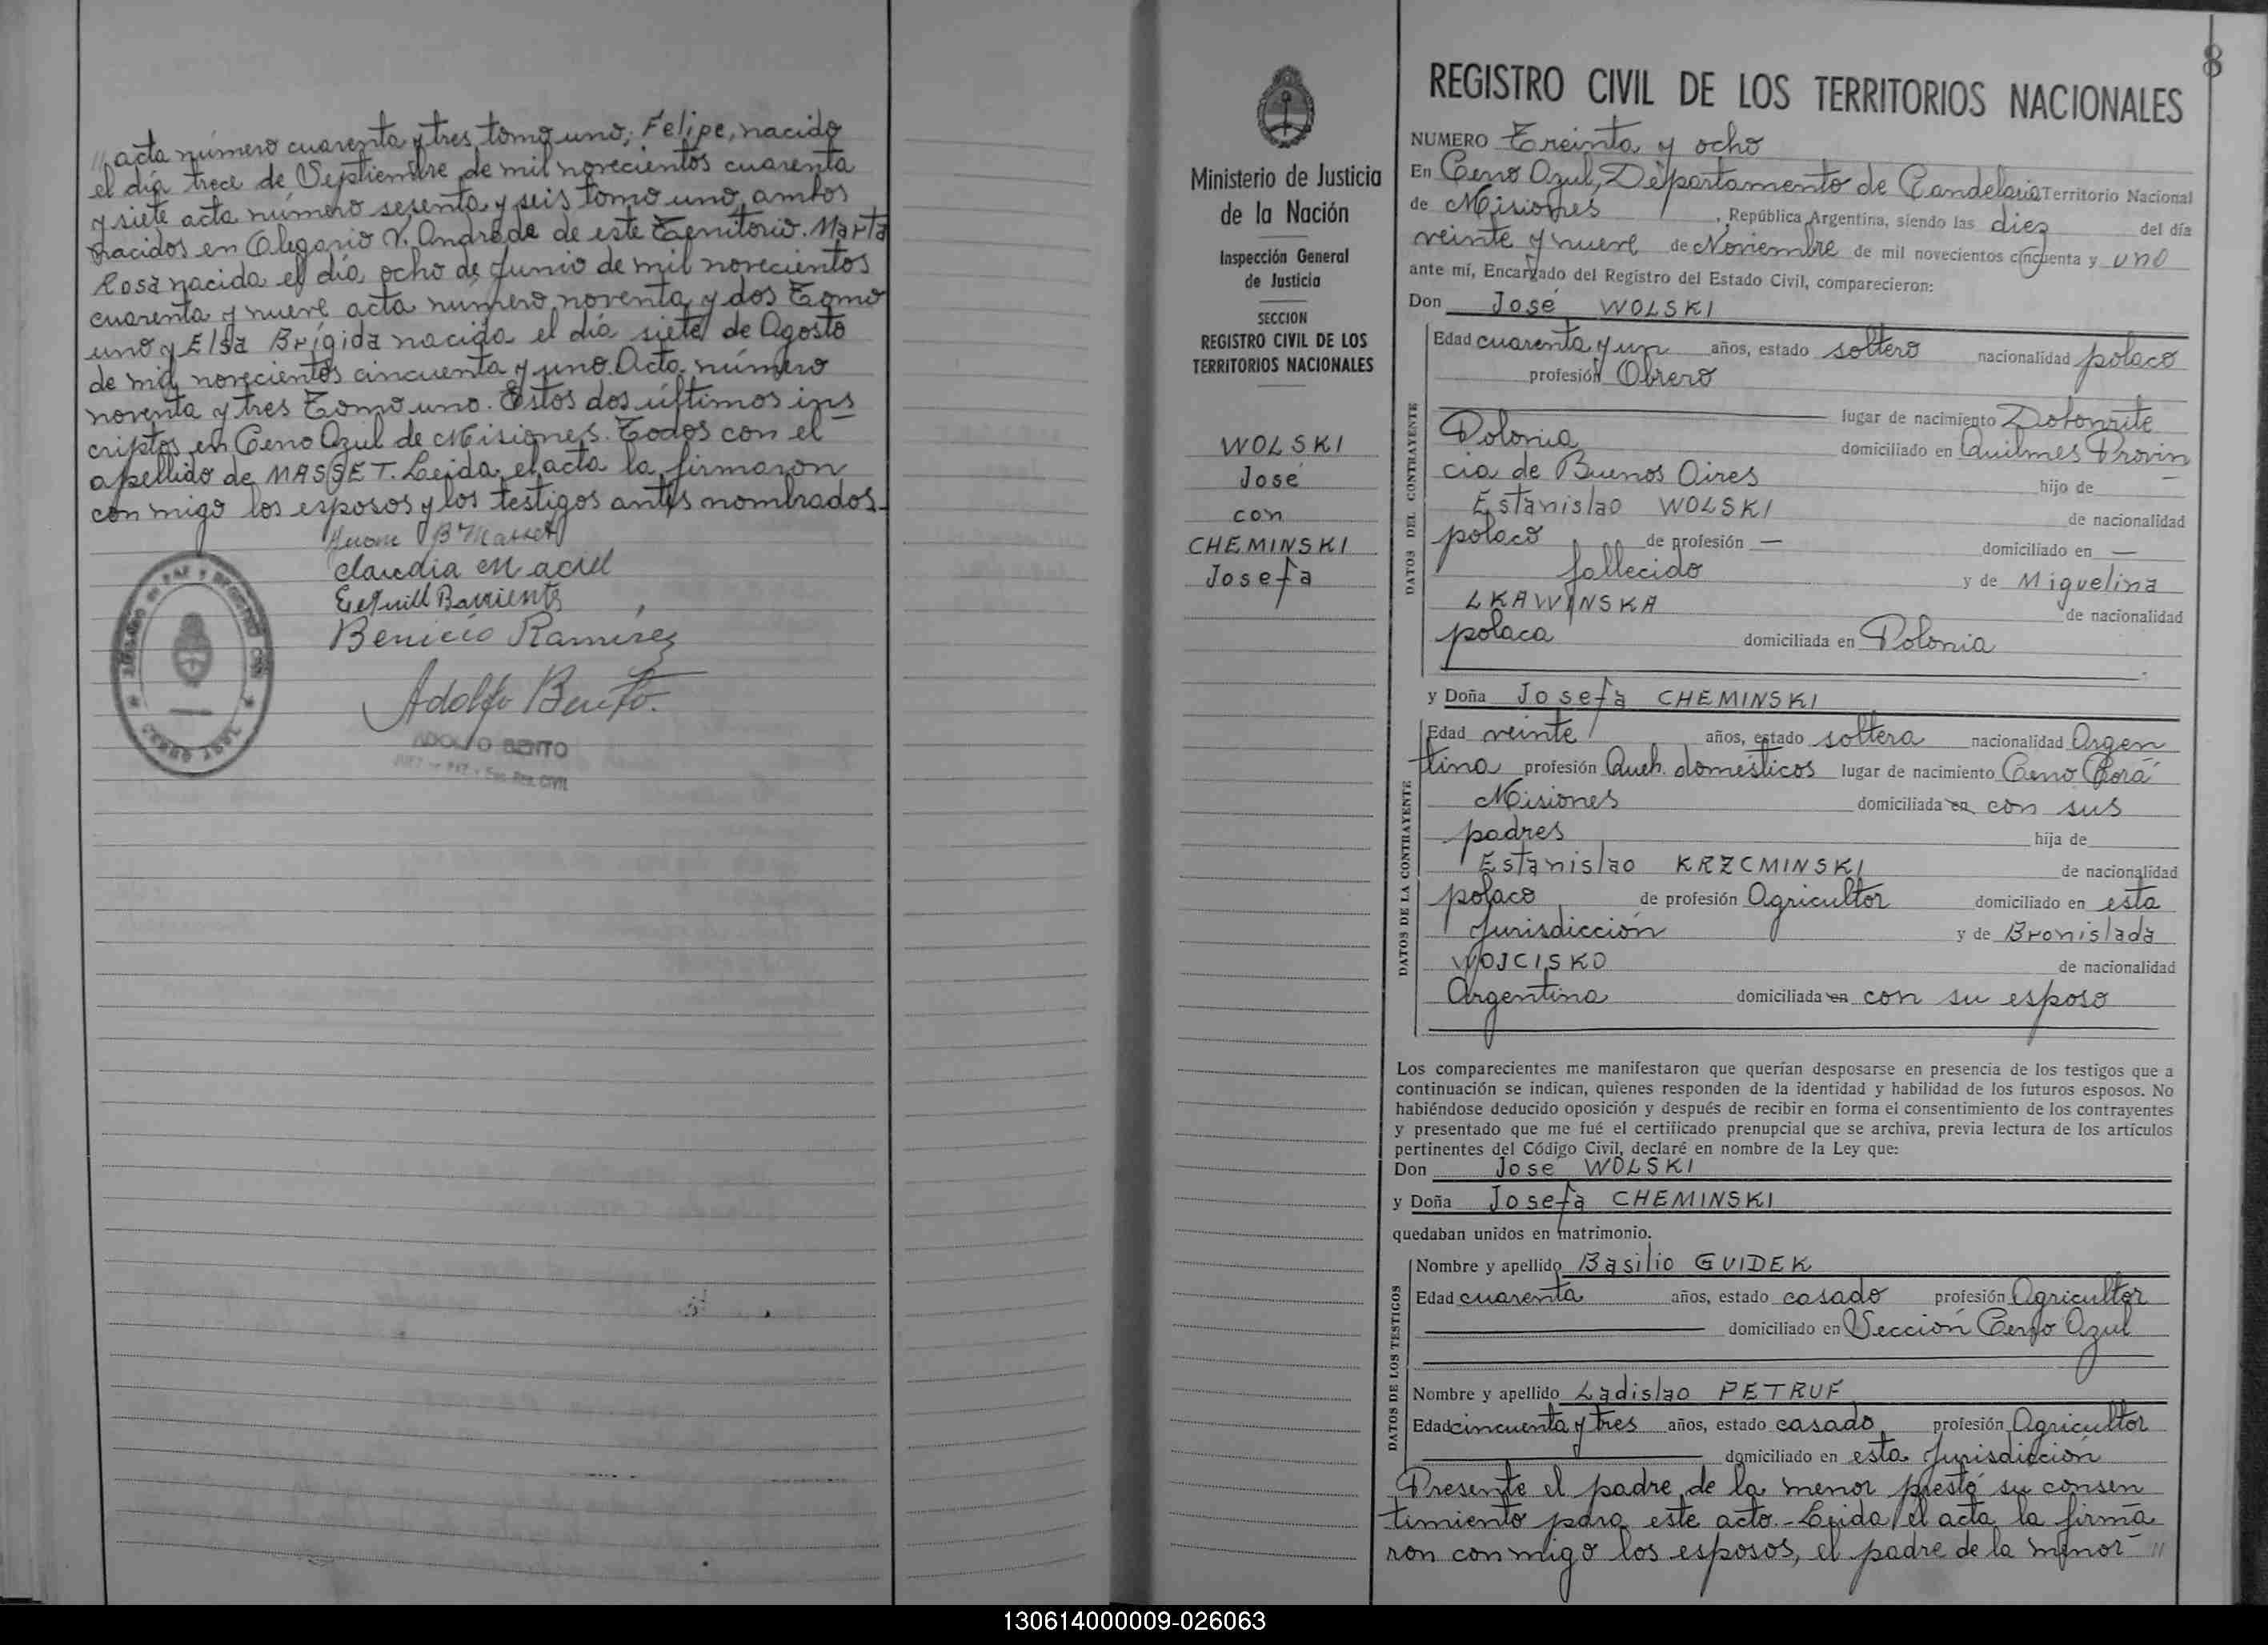 // acta número cuarenta y tres tomo uno; Felipe, nacido
el día trece de Septiembre de mil novecientos cuarenta
y siete acta número sesenta y seis tomo uno, ambos
nacidos en Olegario V. Andrade de este Territorio. Marta
Rosa nacida el día ocho de Junio de mil novecientos
cuarenta y nueve acta número noventa y dos Tomo
uno y Elsa Brígida nacida el día siete de Agosto
de mil novecientos cincuenta y uno. Acta número
noventa y tres Tomo uno. Estos dos últimos ins
criptos en Cerro Azul de Misiones. Todos con el
apellido de MASSET. Leida el acta la firmaron
con migo los esposos y los testigos antes nombrados.
Juan B Masset
Claudia Maciel
Barrientos
Benicio Ramírez
Adolfo Bento.
ADOLFO BENTO
JUEZ DE PAZ y Enc. Reg. CIVIL
JUZGADO DE PAZ Y REGISTRO CIVIL
CERRO AZUL
8
Ministerio de Justicia
de la Nación
Inspección General
de Justicia
SECCION
REGISTRO CIVIL DE LOS
TERRITORIOS NACIONALES
WOLSKI
José
con
CHEMINSKI
Josefa
REGISTRO CIVIL DE LOS TERRITORIOS NACIONALES
NUMERO Treinta y ocho
En Cerro Azul, Departamento de Candelaria Territorio Nacional
de Misiones, República Argentina, siendo las diez del día
veinte y nueve de Noviembre de mil novecientos cincuenta y uno
ante mí, Encargado del Registro del Estado Civil, comparecieron:
Don José WOLSKI
DATOS DEL CONTRAYENTE
Edad cuarenta y un años, estado soltero nacionalidad polaco
profesión Obrero
lugar de nacimiento
Polonia domiciliado en Quilmes Provin
cia de Buenos Aires hijo de
Estanislao WOLSKI de nacionalidad
polaco de profesión — domiciliado en —
fallecido y de Miguelina
LKAWINSKA de nacionalidad
polaca domiciliada en Polonia
y Doña Josefa CHEMINSKI
DATOS DE LA CONTRAYENTE
Edad veinte años, estado soltera nacionalidad Argen
tina profesión Queh. domésticos lugar de nacimiento Cerro Corá
Misiones domiciliada en con sus
padres hija de
Estanislao KRZCMINSKI de nacionalidad
polaco de profesión Agricultor domiciliado en esta
Jurisdicción y de Bronislada
WOJCISKO de nacionalidad
Argentina domiciliada en con su esposo
Los comparecientes me manifestaron que querían desposarse en presencia de los testigos que a
continuación se indican, quienes responden de la identidad y habilidad de los futuros esposos. No
habiéndose deducido oposición y después de recibir en forma el consentimiento de los contrayentes
y presentado que me fué el certificado prenupcial que se archiva, previa lectura de los artículos
pertinentes del Código Civil, declaré en nombre de la Ley que:
Don Jose WOLSKI
y Doña Josefa CHEMINSKI
quedaban unidos en matrimonio.
DATOS DE LOS TESTIGOS
Nombre y apellido Basilio GUIDEK
Edad cuarenta años, estado casado profesión Agricultor
domiciliado en Sección Cerro Azul
Nombre y apellido Ladislao PETRUF
Edad cincuenta y tres años, estado casado profesión Agricultor
domiciliado en esta Jurisdicción
Presente el padre de la menor prestó su consen
timiento para este acto.- Leida el acta la firma
ron con migo los esposos, el padre de la menor //
130614000009-026063